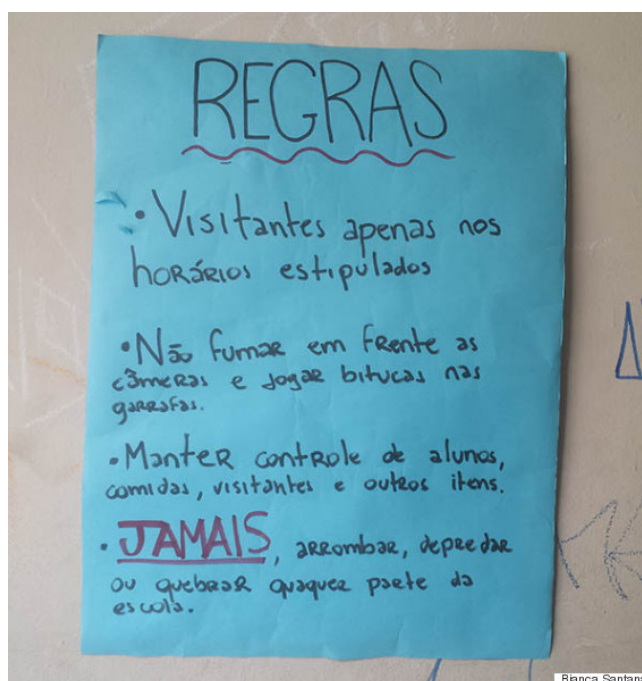 REGRAS
• Visitantes apenas nos
horários estipulados
• Não fumar em frente as
câmeras e jogar bitucas nas
garrafas.
• Manter controle de alunos,
comidas, visitantes e outros itens.
• JAMAIS, arrombar, depredar
ou quebrar quaquer parte da
escola.
Bianca Santana